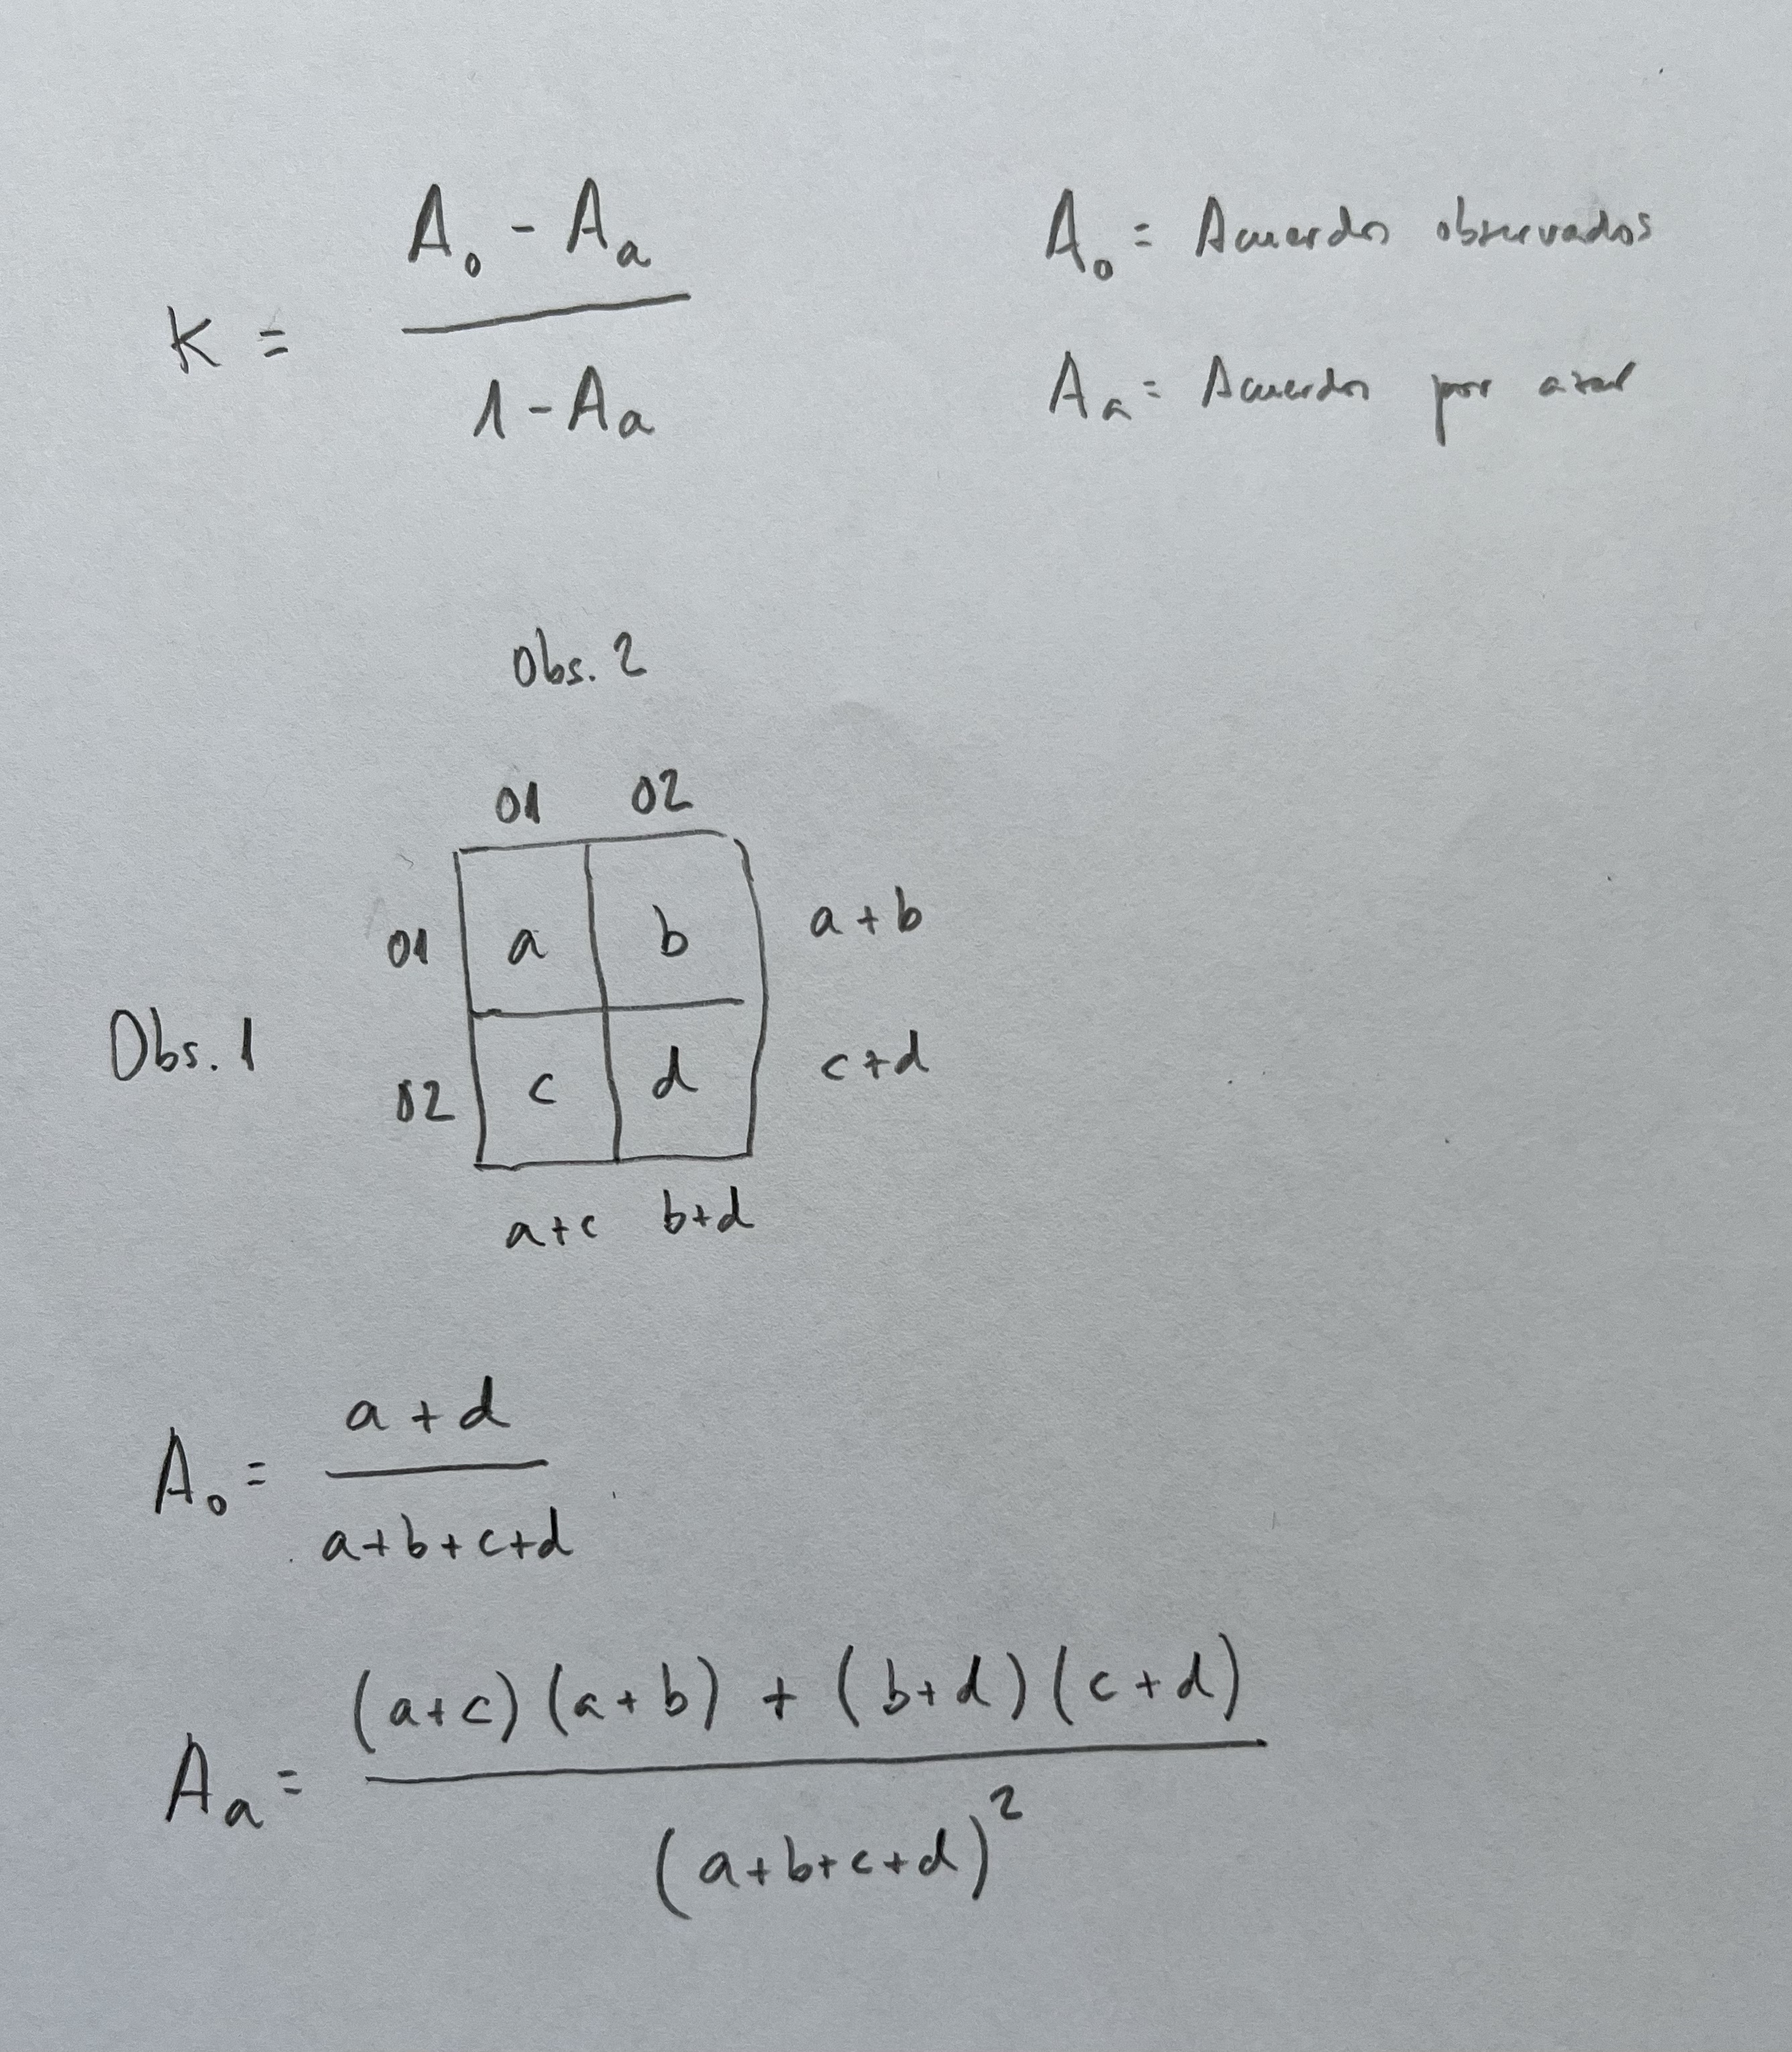 K = (A₀ - Aₐ) / (1 - Aₐ)
A₀ = Acuerdos observados
Aₐ = Acuerdos por azar
Obs. 2
01 02
01 a b a + b
Obs. 1
02 c d c + d
a+c b+d
A₀ = (a + d) / (a+b+c+d)
Aₐ = ((a+c)(a+b) + (b+d)(c+d)) / (a+b+c+d)²